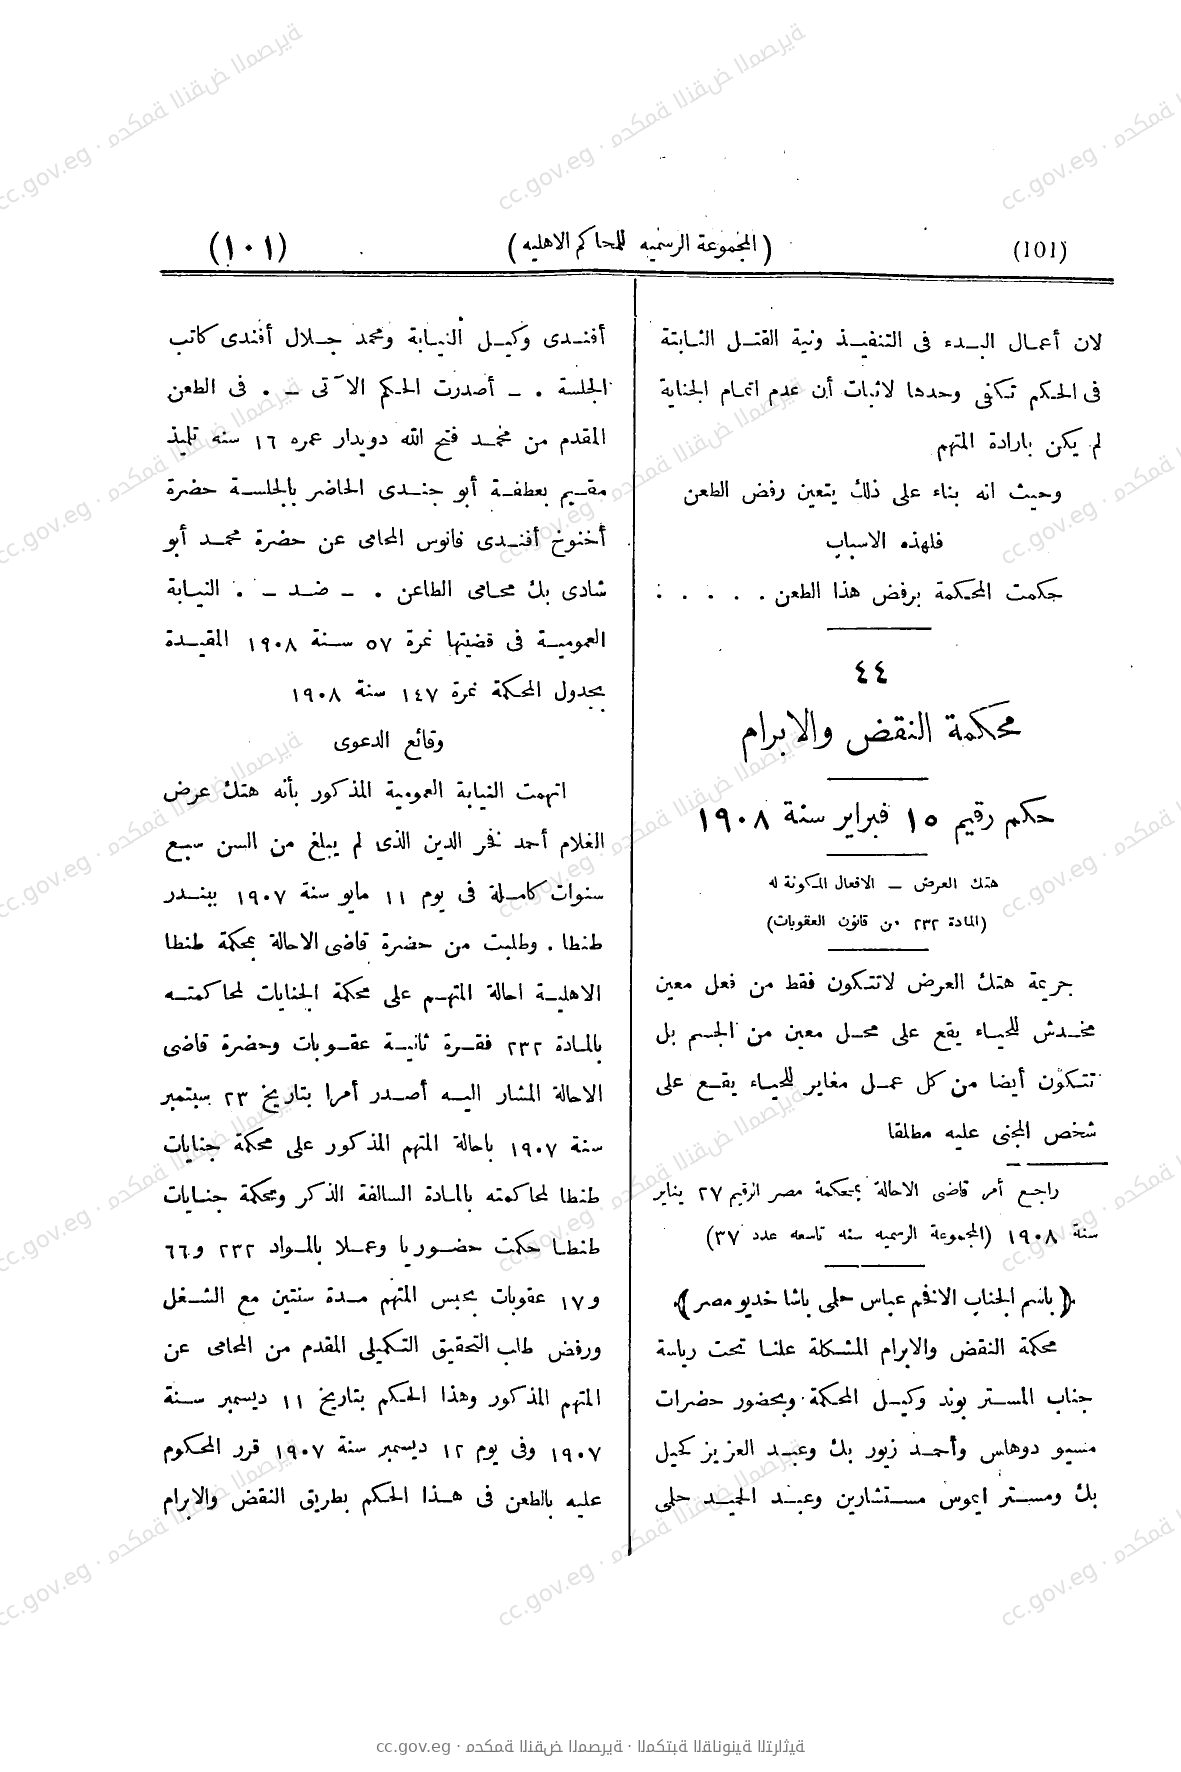 (101) (المجموعة الرسميه للمحاكم الاهليه) (١٠١)
لان أعمال البدء فى التنفيذ ونية القتل الثابتة
فى الحكم تكفى وحدها لاثبات أن عدم اتمام الجناية
لم يكن بارادة المتهم
وحيث انه بناء على ذلك يتعين رفض الطعن
فلهذه الاسباب
حكمت المحكمة برفض هذا الطعن . . . . :
٤٤
محكمة النقض والابرام
حكم رقيم ١٥ فبراير سنة ١٩٠٨
هتك العرض ــ الافعال المكونة له
(المادة ٢٣٢ من قانون العقوبات)
جريمة هتك العرض لاتتكون فقط من فعل معين
مخدش للحياء يقع على محل معين من الجسم بل
تتكون أيضا من كل عمل مغاير للحياء يقع على
شخص المجنى عليه مطلقا
راجع أمر قاضى الاحالة بمحكمة مصر الرقيم ٢٧ يناير
سنة ١٩٠٨ (المجموعة الرسميه سنه تاسعه عدد ٣٧)
﴿ باسم الجناب الافخم عباس حلمى باشا خديو مصر ﴾
محكمة النقض والابرام المشكلة علنا تحت رياسة
جناب المستر بوند وكيل المحكمة وبحضور حضرات
مسيو دوهلس وأحمد زيور بك وعبد العزيز كحيل
بك ومستر ايموس مستشارين وعبد الحميد حلمى
أفندى وكيل النيابة ومحمد جلال أفندى كاتب
الجلسة . ــ أصدرت الحكم الآتى ــ . فى الطعن
المقدم من محمد فتح الله دويدار عمره ١٦ سنه تلميذ
مقيم بعطفة أبو جندى الحاضر بالجلسة حضرة
أخنوخ أفندى فانوس المحامى عن حضرة محمد أبو
شادى بك محامى الطاعن . ــ ضد ــ . النيابة
العمومية فى قضيتها نمرة ٥٧ سنة ١٩٠٨ المقيدة
بجدول المحكمة نمرة ١٤٧ سنة ١٩٠٨
وقائع الدعوى
اتهمت النيابة العمومية المذكور بأنه هتك عرض
الغلام أحمد فخر الدين الذى لم يبلغ من السن سبع
سنوات كاملة فى يوم ١١ مايو سنة ١٩٠٧ ببندر
طنطا . وطلبت من حضرة قاضى الاحالة بمحكمة طنطا
الاهلية احالة المتهم على محكمة الجنايات لمحاكمته
بالمادة ٢٣٢ فقرة ثانية عقوبات وحضرة قاضى
الاحالة المشار اليه أصدر أمرا بتاريخ ٢٣ سبتمبر
سنة ١٩٠٧ باحالة المتهم المذكور على محكمة جنايات
طنطا لمحاكمته بالمادة السالفة الذكر ومحكمة جنايات
طنطا حكمت حضوريا وعملا بالمواد ٢٣٢ و٦٦
و١٧ عقوبات بحبس المتهم مدة سنتين مع الشغل
ورفض طلب التحقيق التكميلى المقدم من المحامى عن
المتهم المذكور وهذا الحكم بتاريخ ١١ ديسمبر سنة
١٩٠٧ وفى يوم ١٢ ديسمبر سنة ١٩٠٧ قرر المحكوم
عليه بالطعن فى هذا الحكم بطريق النقض والابرام
cc.gov.eg · محكمة النقض المصرية · المكتبة القانونية التراثية